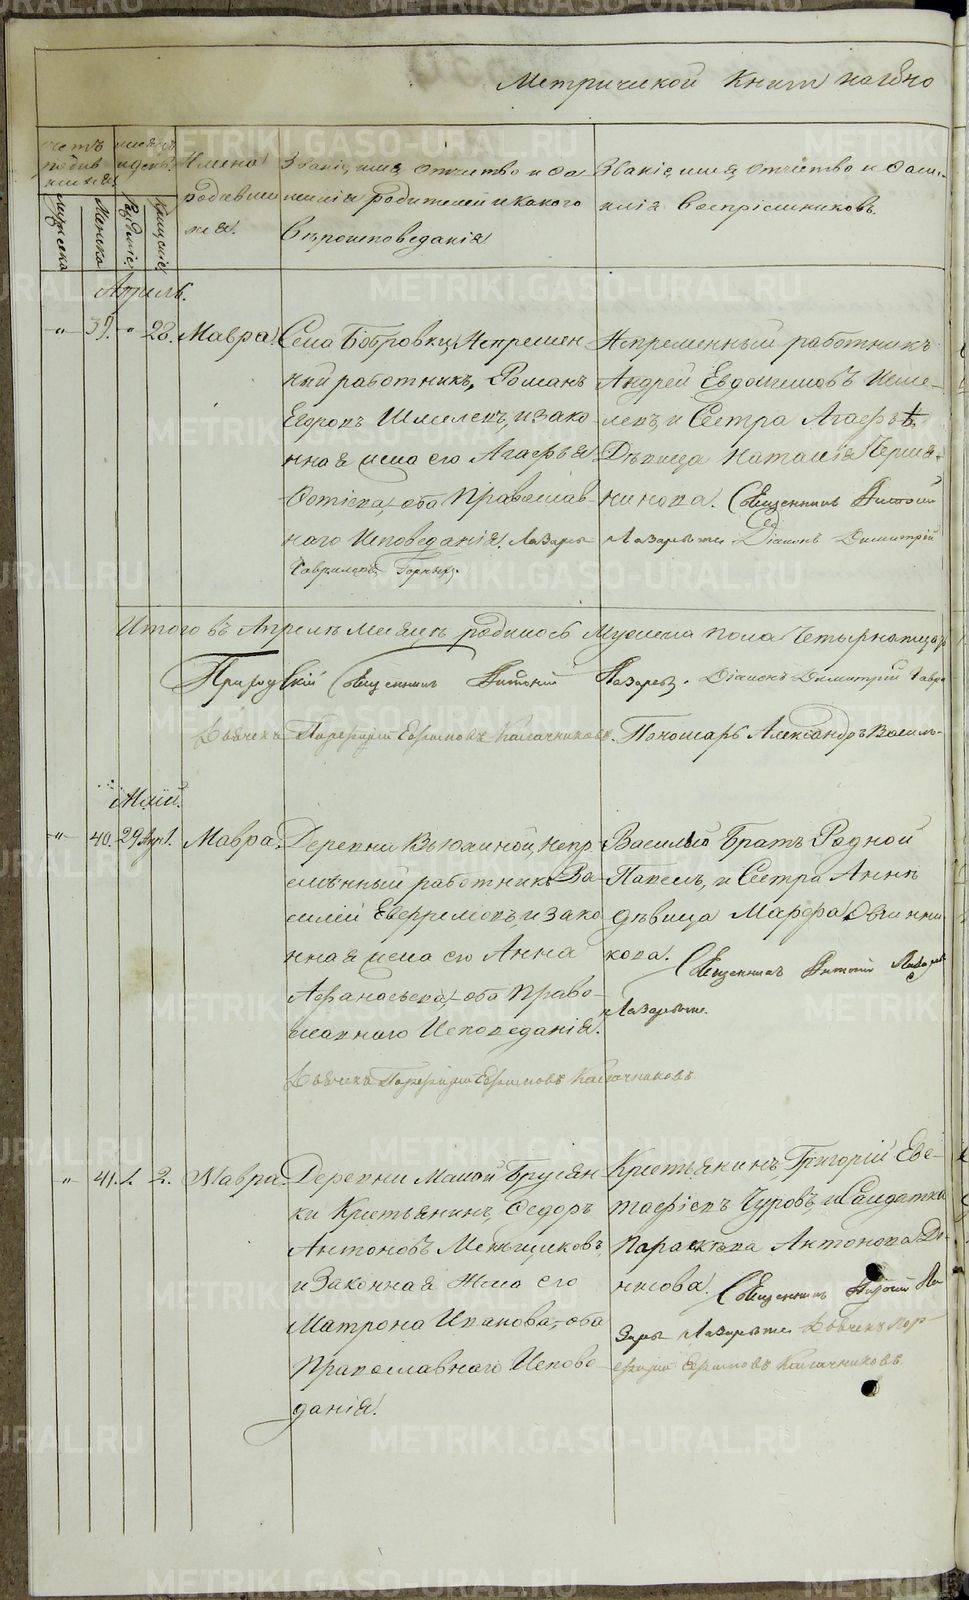 Метрической Книги на 18го
счетъ родившихся
мужеска
женска
месяцъ и день
Рожденiе
Крещенiе
Имена родившихся.
Званiе, имя, отчество и фамилiя родителей и какого Вѣроисповѣданiя
Званiе, имя, отчество и фамилiя Воспрiемниковъ.
Апрель.
-"- 39. " 28. Мавра.
Села Бобровки, Непремен
ный работникъ, Романъ
Егоровъ Шмелевъ, и зако
нная жена его Агафья
Фотiева, оба Православ
наго Исповеданiя.
Непременный работникъ
Андрей Евдокимовъ Шме-
левъ, и Сестра Агафьѣ
Дѣвица Наталiя Черни-
никова. Священникъ
Лазаревъ Дiаконъ Димитрiй
Итого въ Апрелѣ месяцѣ родилось Мужеска пола Четырнатцать
Приходскiй Священникъ
Лазаревъ. Дiаконъ Димитрiй Гаври
Дьячекъ Порфирiй Ефимовъ Калачниковъ. Пономарь Александръ Василь-
Маiй.
-"- 40. 29 Апр. 1. Мавра.
Деревни Вьюхиной, непр
емѣнный работникъ Ва-
силiй Евфремовъ, и зако
нная жена его Анна
Афанасьева, оба Право-
славнаго Исповеданiя.
Дьячекъ Порфирiй Ефимовъ Калачниковъ
Василью Братъ Родной
Павелъ, и Сестра Аннѣ
дѣвица Марфа Овчинни
кова. Священникъ
Лазаревъ.
-"- 41. 1. 2. Мавра.
Деревни Малой Брусян
ки Крестьянинъ, Федоръ
Антоновъ Меньшиковъ,
и Законная Жена его
Матрона Иванова, оба
Православнаго Испове
данiя.
Крестьянинъ, Григорiй Евс-
тафiевъ Чуровъ, и Солдатка
Параскѣва Антонова Де-
нисова. Священникъ
Дьячекъ Пор-
фирiй Ефимовъ Калачниковъ
METRIKI.GASO-URAL.RU